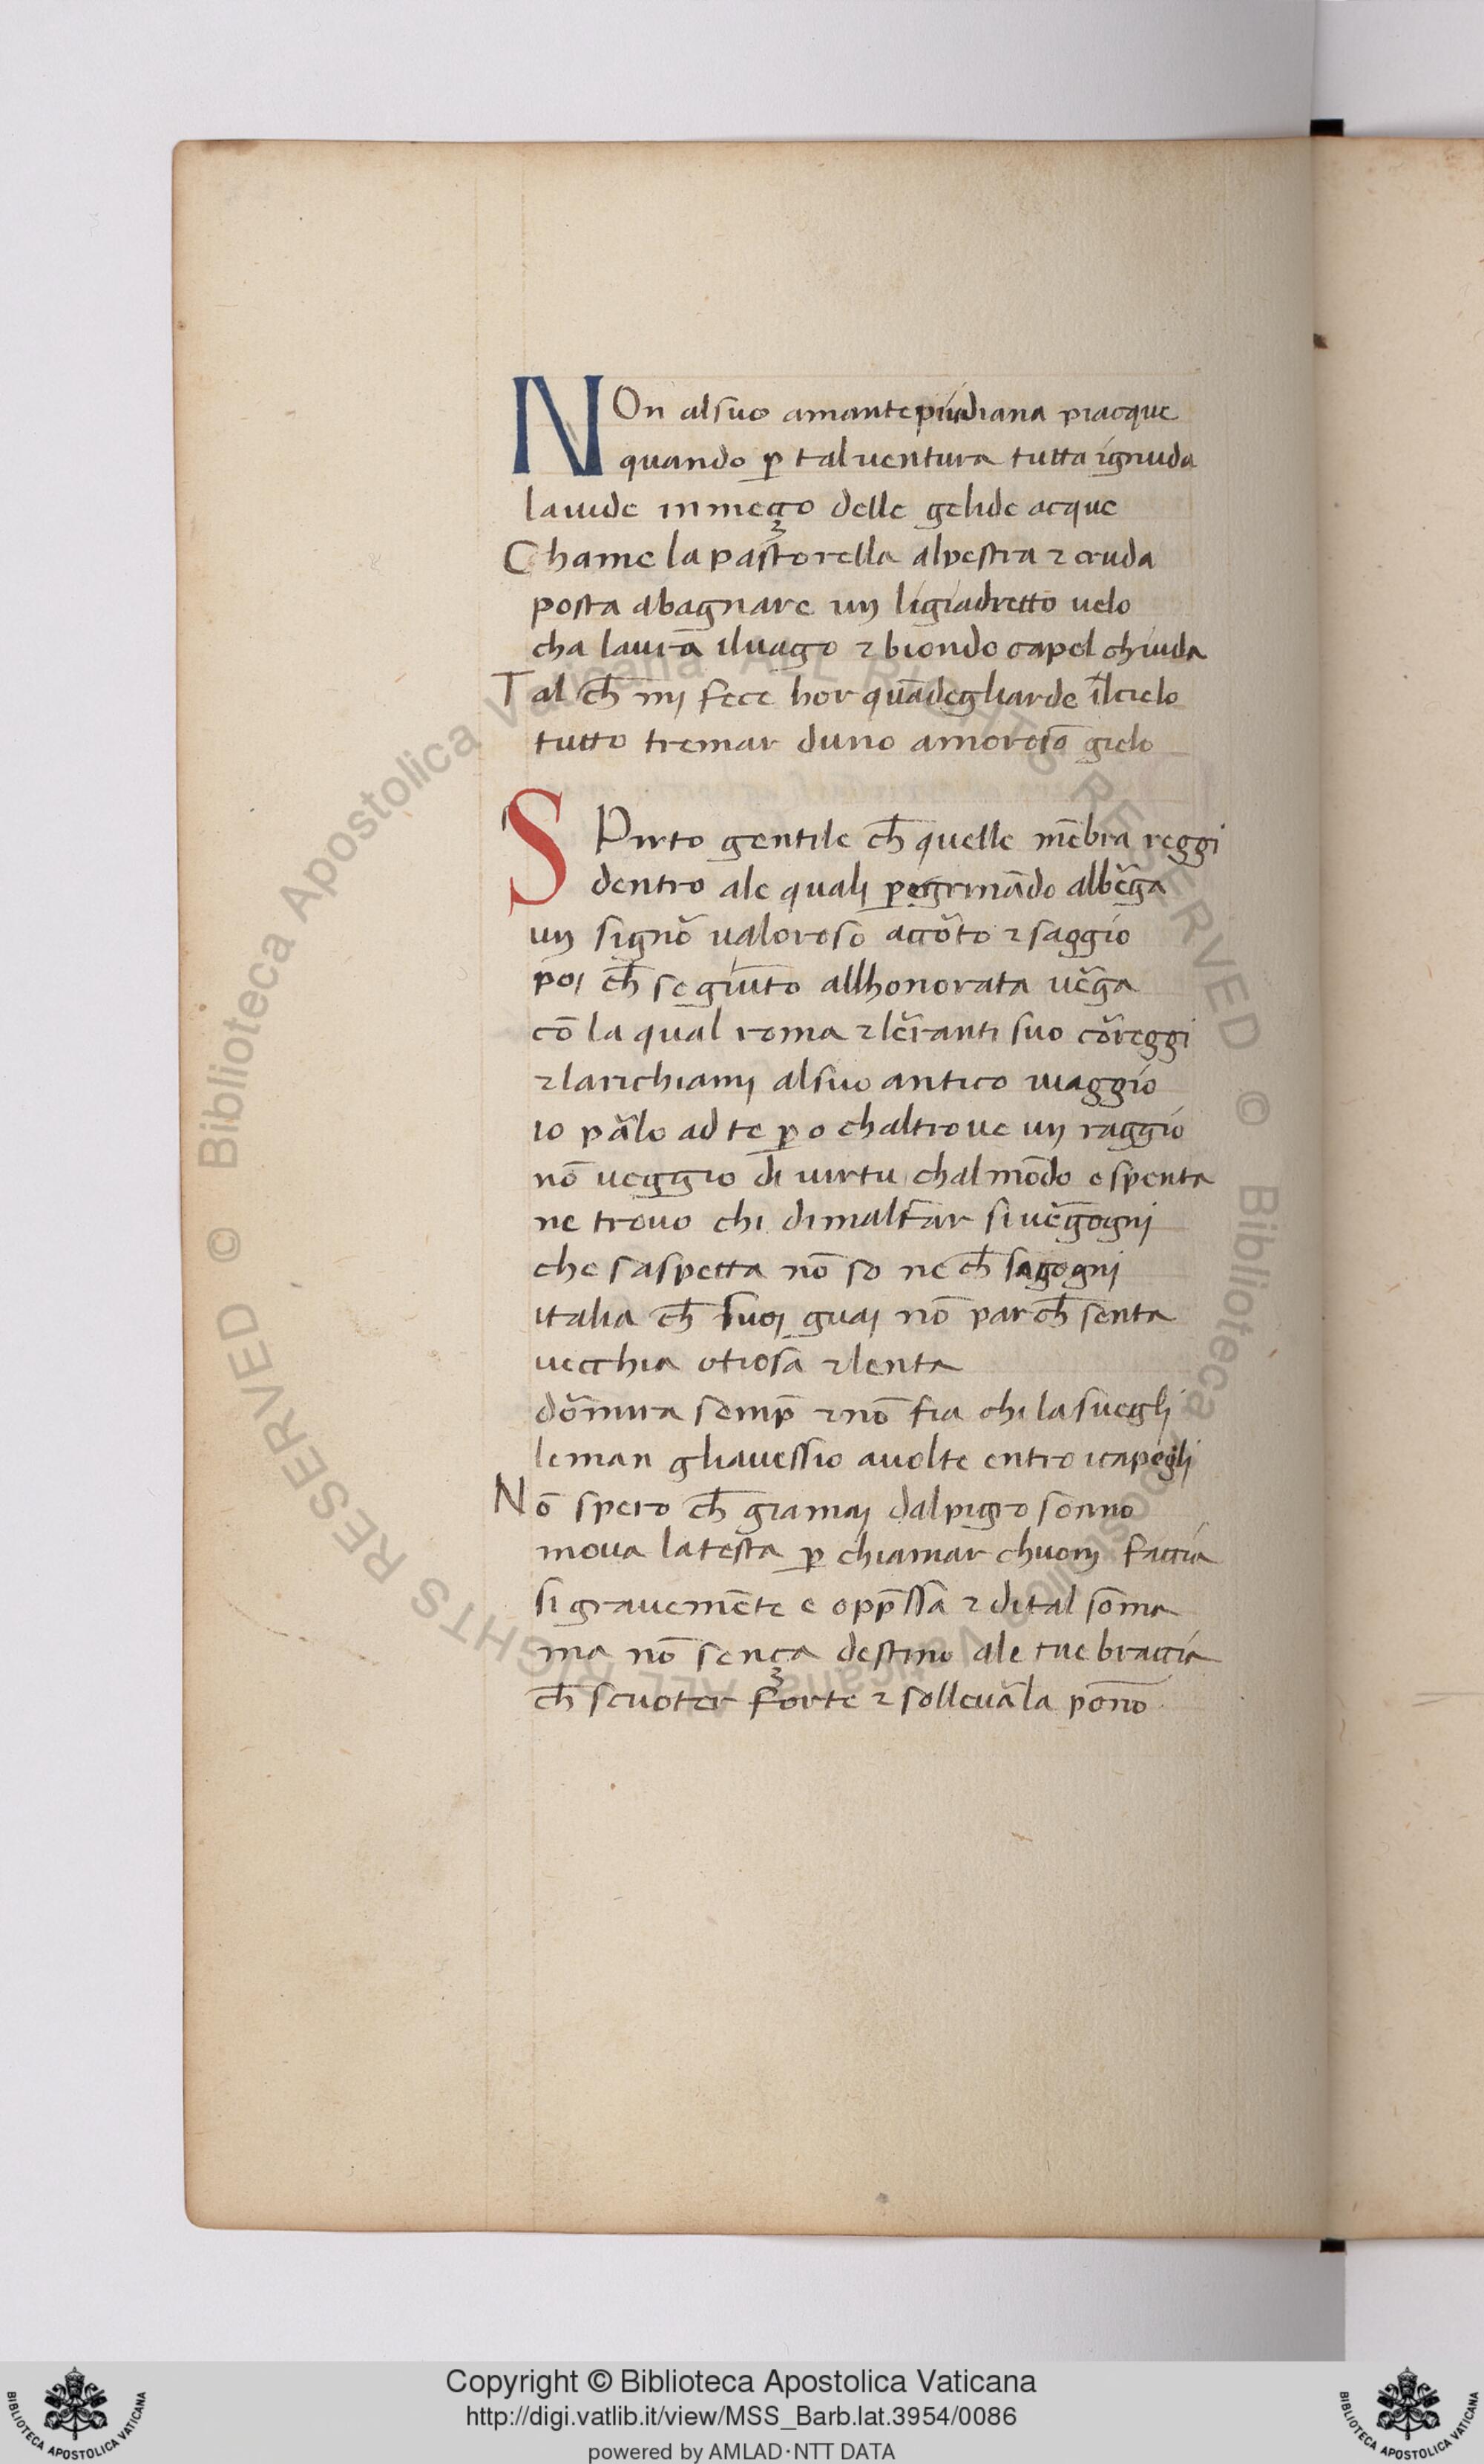 NOn alsuo amante piudiana piacque
quando ꝑ tal uentura tutta ignuda
lauide inmeço delle gelide acque
Chame la pastorella alpestra ⁊ cruda
posta abagnare un ligiadretto uelo
cha laurā iluago ⁊ biondo capel chiuda
Tal ch̄ mj fece hor quādegliarde ilcielo
tutto tremar duno amoroso gielo
SPirto gentile ch̄ quelle mēbra reggi
dentro ale qualj ꝑegrinādo albe᷑ga
un signo᷑ ualoroso acco᷑to ⁊ saggio
poi ch̄ se giūto allhonorata ue᷑ga
cō la qual roma ⁊ le᷑ranti suo co᷑reggi
⁊ larichiamj alsuo antico uiaggio
io pa᷑lo ad te ꝑo chaltroue un raggio
nō ueggio di uirtu chalmōdo e spenta
ne trouo chi dimalfar siue᷑gognj
che saspetta nō so ne ch̄ sagognj
italia ch̄ suoj guaj nō par ch̄ senta
uecchia otiosa ⁊ lenta
do᷑mira semp̄ ⁊ nō fia chi lasueglj
leman gliauessio auolte entro icapeglj
Nō spero ch̄ giamaj dalpigro sonno
moua latesta ꝑ chiamar chuom faccia
si grauemēte e opp̄ssa ⁊ dital soma
ma nō sença destino ale tue braccia
ch̄ scuoter forte ⁊ solleua᷑la ponō
Copyright © Biblioteca Apostolica Vaticana
http://digi.vatlib.it/view/MSS_Barb.lat.3954/0086
powered by AMLAD·NTT DATA